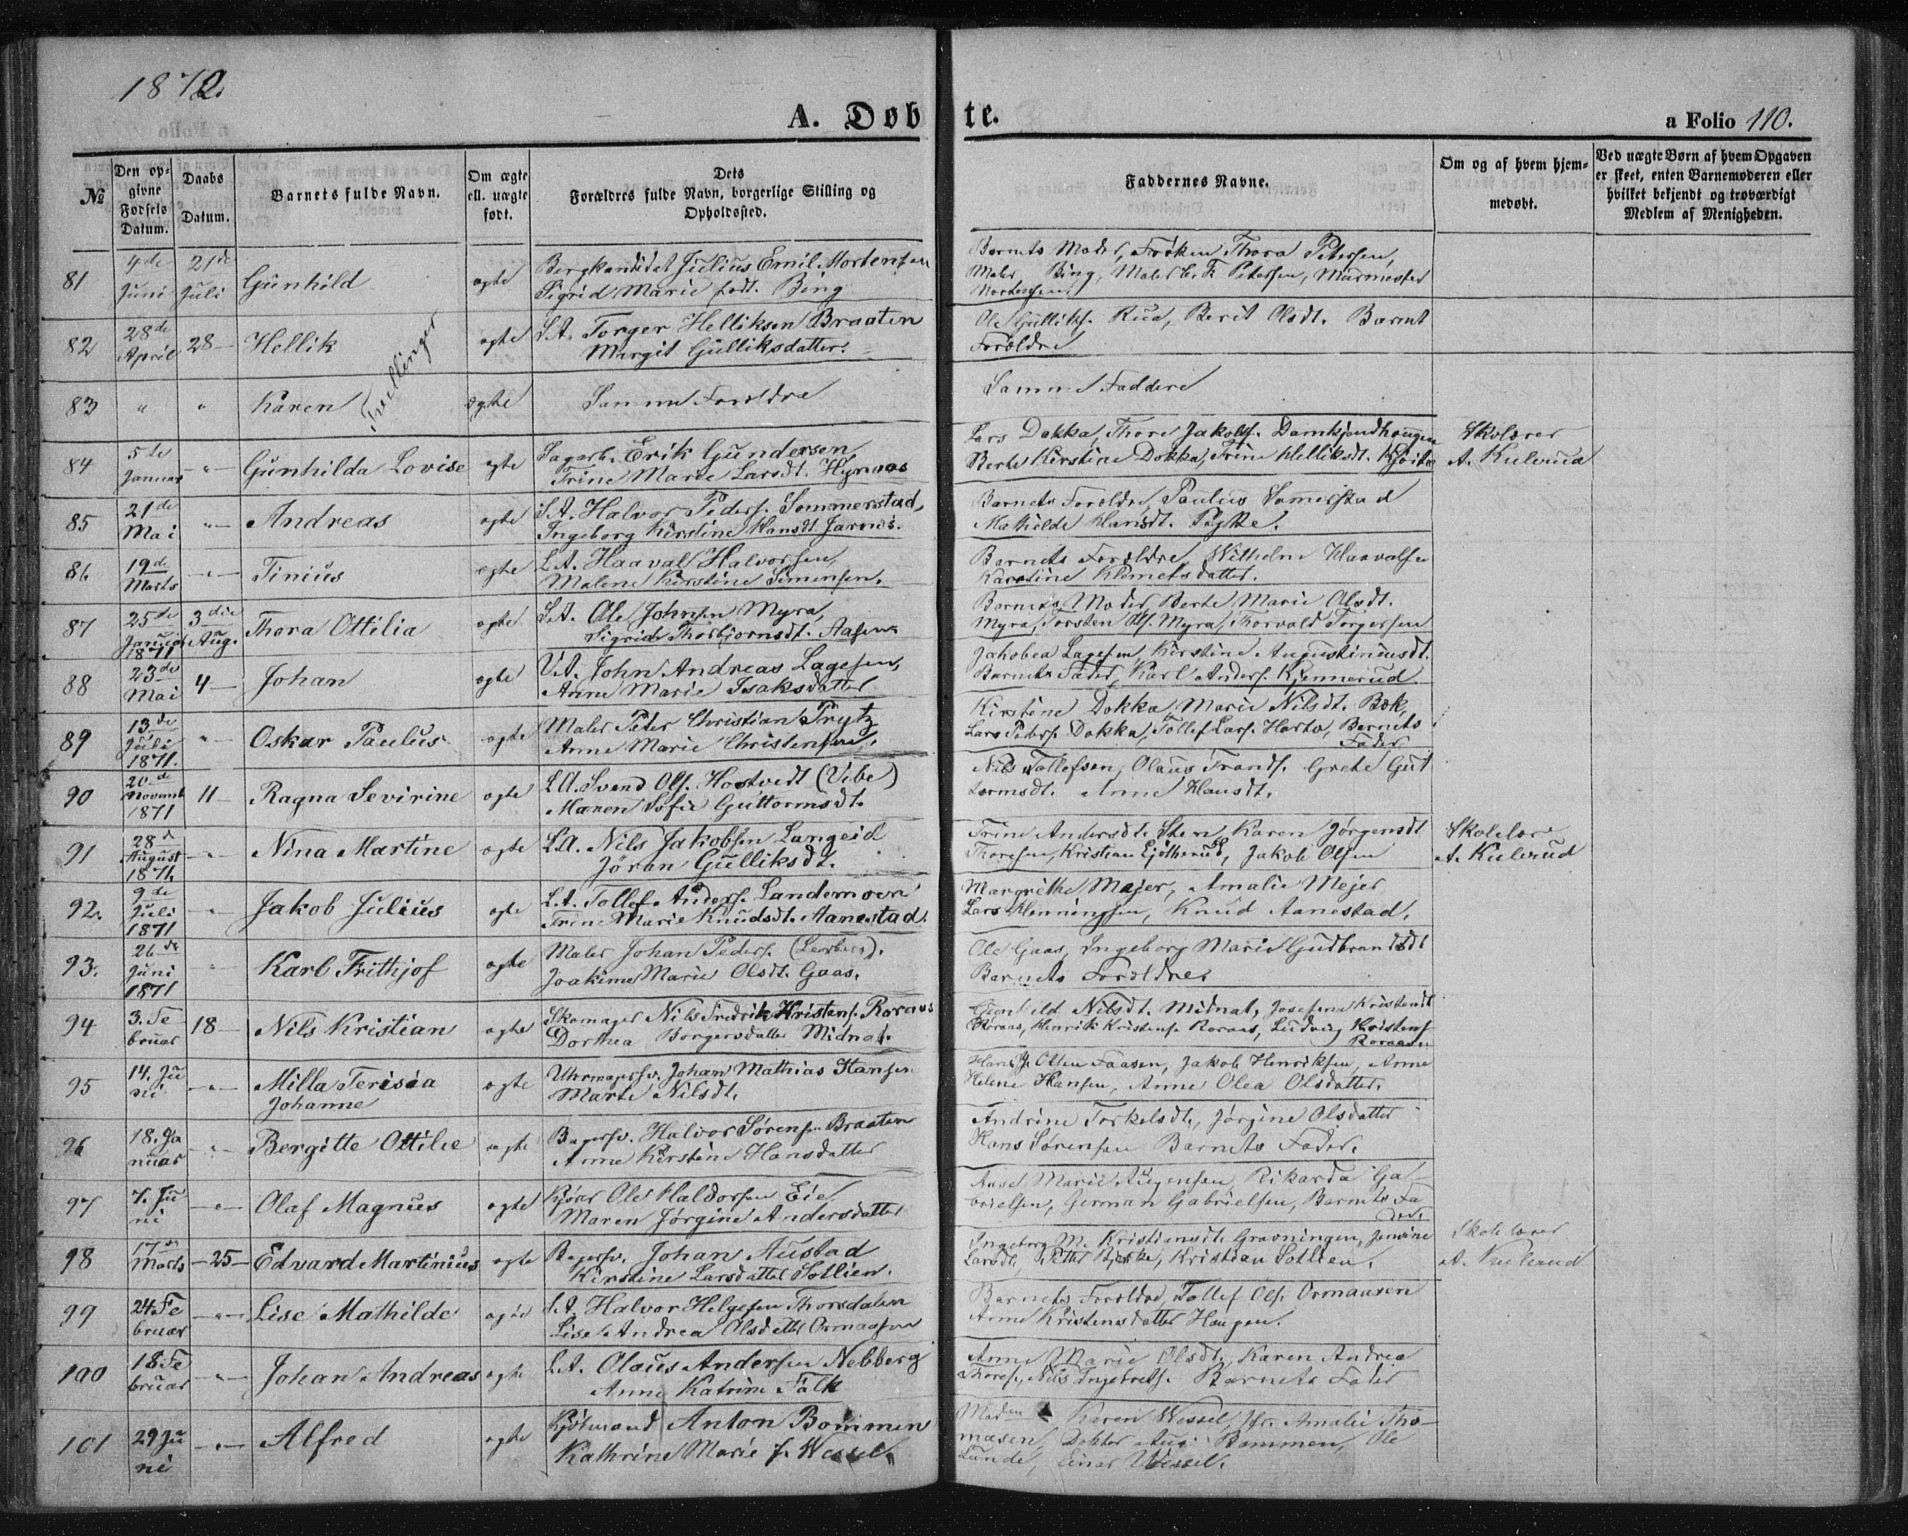 1872.
A. Døbte.
a Folio 110.
№
Den opgivne Fødsels Datum.
Daabs Datum.
Barnets fulde Navn.
Om ægte ell. uægte født.
Dets Forældres fulde Navn, borgerlige Stilling og Opholdssted.
Faddernes Navne.
Om og af hvem hjemmedøbt.
Ved uægte Børn af hvem Opgaven er skeet, enten Barnemoderen eller hvilket bekjendt og troværdigt Medlem af Menigheden.
81 4de Juni 21de Juli Gunhild ægte Bergkandidat Julius Emil Mortensen
Sigrid Marie født Bing
Barnets Moder, Frøken Thora Petersen,
Maler Bing, Maler E. F. Petersen, Murmester
Mortensen.
82 28de April 28 Hellik ægte L.A. Torger Helliksen Braaten
Margit Gulliksdatter.
Ole Golliks. Rua, Berit Olsdt. Barnets
Forældre
83 " " Karen Tvellinger ægte Samme Forældre
Samme Faddere
84 5te Januar -"- Gunhilda Lovise ægte Sagarb. Erik Gundersen,
Trine Marie Larsdt.
Lars Dokka, Thore Jakobs. Damkjendhaugen
Berte Kirstine Dokka, Trine Helliksdt.
Skolærer
A. Kulerud
85 21de Mai -"- Andreas ægte L.A. Halvor Peders. Sommerstad,
Ingeborg Kirstine Hansdt.
Barnets Forældre, Paulus Somerstad
Mathilde Hansdt. Pytte.
86 19de Marts -"- Tinius ægte L.A. Haaval Halvorsen
Malene Kirstine Simensen.
Barnets Forældre, Wilhelm Haavalsen
Karoline Klemetsdatter.
87 25de Januar 1871 3die Aug. Thora Ottilia ægte L.A. Ole Johnsen Myra,
Sigrid Thorbjørnsdt. Aasen
Barnets Moder, Berte Marie Olsdt.
Myra, Torsten Ols. Myra, Thorvald Torgersen
88 23de Mai 4 Johan ægte L.A. John Andreas Lagesen,
Anne Marie Isaksdatter
Jakobea Lagesen, Kirstine Augustinusdt.
Barnets Fader, Karl Anders. Kjennerud
89 13de Juli 1871. " Oskar Paulus ægte Maler Peter Christian Prytz
Anne Marie Christensen.
Kirstine Dokka, Marie Nilsdt. Bæk,
Lars Peders. Dokka, Tollef Lars. Harto, Barnets
Fader
90 20de Novemb 1871 11 Ragna Sevirine ægte L.A. Svend Ols. Hostvedt (Vibe)
Maren Sofie Guttormsdt.
Nils Tollefsen, Olaus Frands. Grete Gut
tormsdt. Anne Hansdt.
91 28d August 1871. -"- Nina Martine ægte L.A. Nils Jakobsen Langeid
Jøran Gulliksdt.
Trine Andersdt. Sten, Karen Jørgensdt
Thoresen, Kristian Ljøtherud, Jakob Olsen
Skolelær.
A. Kulerud
92. 9de Juli 1871 -"- Jakob Julius ægte L.A. Tollef Anders. Landemoen
Trine Marie Knudsdt. Aanestad.
Margrethe Mejer, Amalie Mejer
Lars Henningsen, Knud Aanestad.
93. 26de Juni 1871 " Karl Frithjof ægte Maler Johan Peders.
Joakime Marie Olsdt. Gaas.
Ole Gaas, Ingeborg Marie Gudbrandsdt
Barnets Forældre
94 3. Fe bruar 18 Nils Kristian ægte Skomager Nils Fredrik Kristens. Roraas
Dorthea Borgersdatter Midnat.
Gunhild Nilsdt. Midnat, Josefine Kristensdt
Roraas, Henrik Kristens. Roraas, Ludvig Kristens
Roraas
95 14. Ju ni -"- Milla Terisia
Johanne ægte Uhrmagersv. Johan Mathias Hansen
Marte Nilsdt.
Hans J. Olsen Faasen, Jakob Henriksen, Anne
Helene Hansen, Anne Olea Olsdatter.
96 18. Ja nuar -"- Bergitte Ottilie ægte Bagersv. Halvor Sørensen Braaten
Anne Kirstine Hansdatter
Andrine Torkelsdt, Jørgine Olsdatter
Hans Sørensen Barnets Fader.
97 7. Ju ni -"- Olaf Magnus ægte Kjører Ole Haldorsen Eie
Maren Jørgine Andersdatter
Anne Marie Augensen, Rikarda Ga
brielsen, German Gabrielsen, Barnets Fa
der
98 17de Marts -25- Edvard Martinius ægte Bagersv. Johan Austad
Kirstine Larsdatter Sotlien.
Ingeborg M. Kristiansdt. Gravningen, Jensine
Larsdt, Petter Bjerke, Kristian Sotlien.
Skolelærer
A. Kulerud
99 24. Fe bruar -"- Lise Mathilde ægte L.A. Halvor Helgesen Thorsdalen
Lise Andrea Olsdatter Ormaasen
Barnets Forældre, Tollef Ols. Ormaasen
Anne Kristensdatter Haugen.
100 18 Fe bruar -"- Johan Andreas ægte L.A. Olaus Andersen Nebberg
Anne Katrine Falk
Anne Marie Olsdt, Karen Andrea
Thores, Nils Ingebrets. Barnets Fader
101 29 Ju ni -"- Alfred ægte Kjøbmand Anton Bommen
Kathrine Marie f. Wessel.
Madm Karen Wessel, Jfr. Amalie Tho-
mæsen, Doktor Aug. Bommen, Ole
Lunde, Einar Wessel.